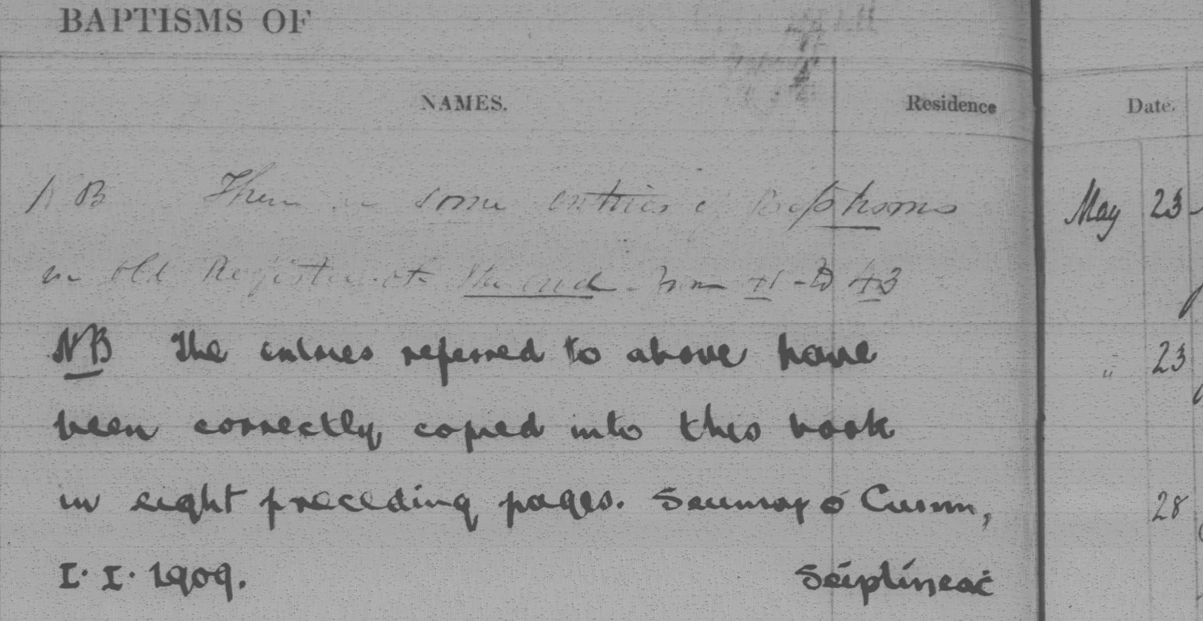 BAPTISMS OF
NAMES. Residence Date.
NB There some entries Baptisms May 23
in old Register at the end from 41 to 43
NB The entries referred to above have " 23
been correctly copied into this book
in eight preceding pages. Seumas ó Cuinn, 28
I. I. 1909. Séiplíneaċ